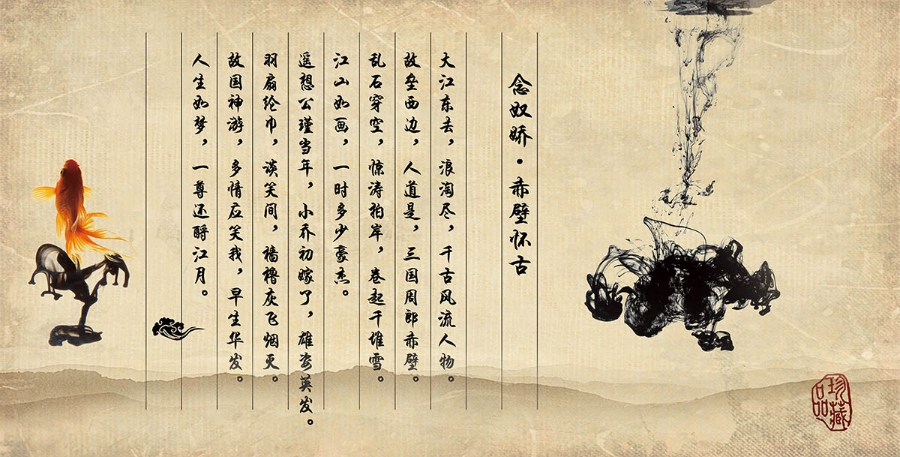 念奴娇·赤壁怀古
大江东去，浪淘尽，千古风流人物。
故垒西边，人道是，三国周郎赤壁。
乱石穿空，惊涛拍岸，卷起千堆雪。
江山如画，一时多少豪杰。
遥想公瑾当年，小乔初嫁了，雄姿英发。
羽扇纶巾，谈笑间，樯橹灰飞烟灭。
故国神游，多情应笑我，早生华发。
人生如梦，一尊还酹江月。
珍藏品